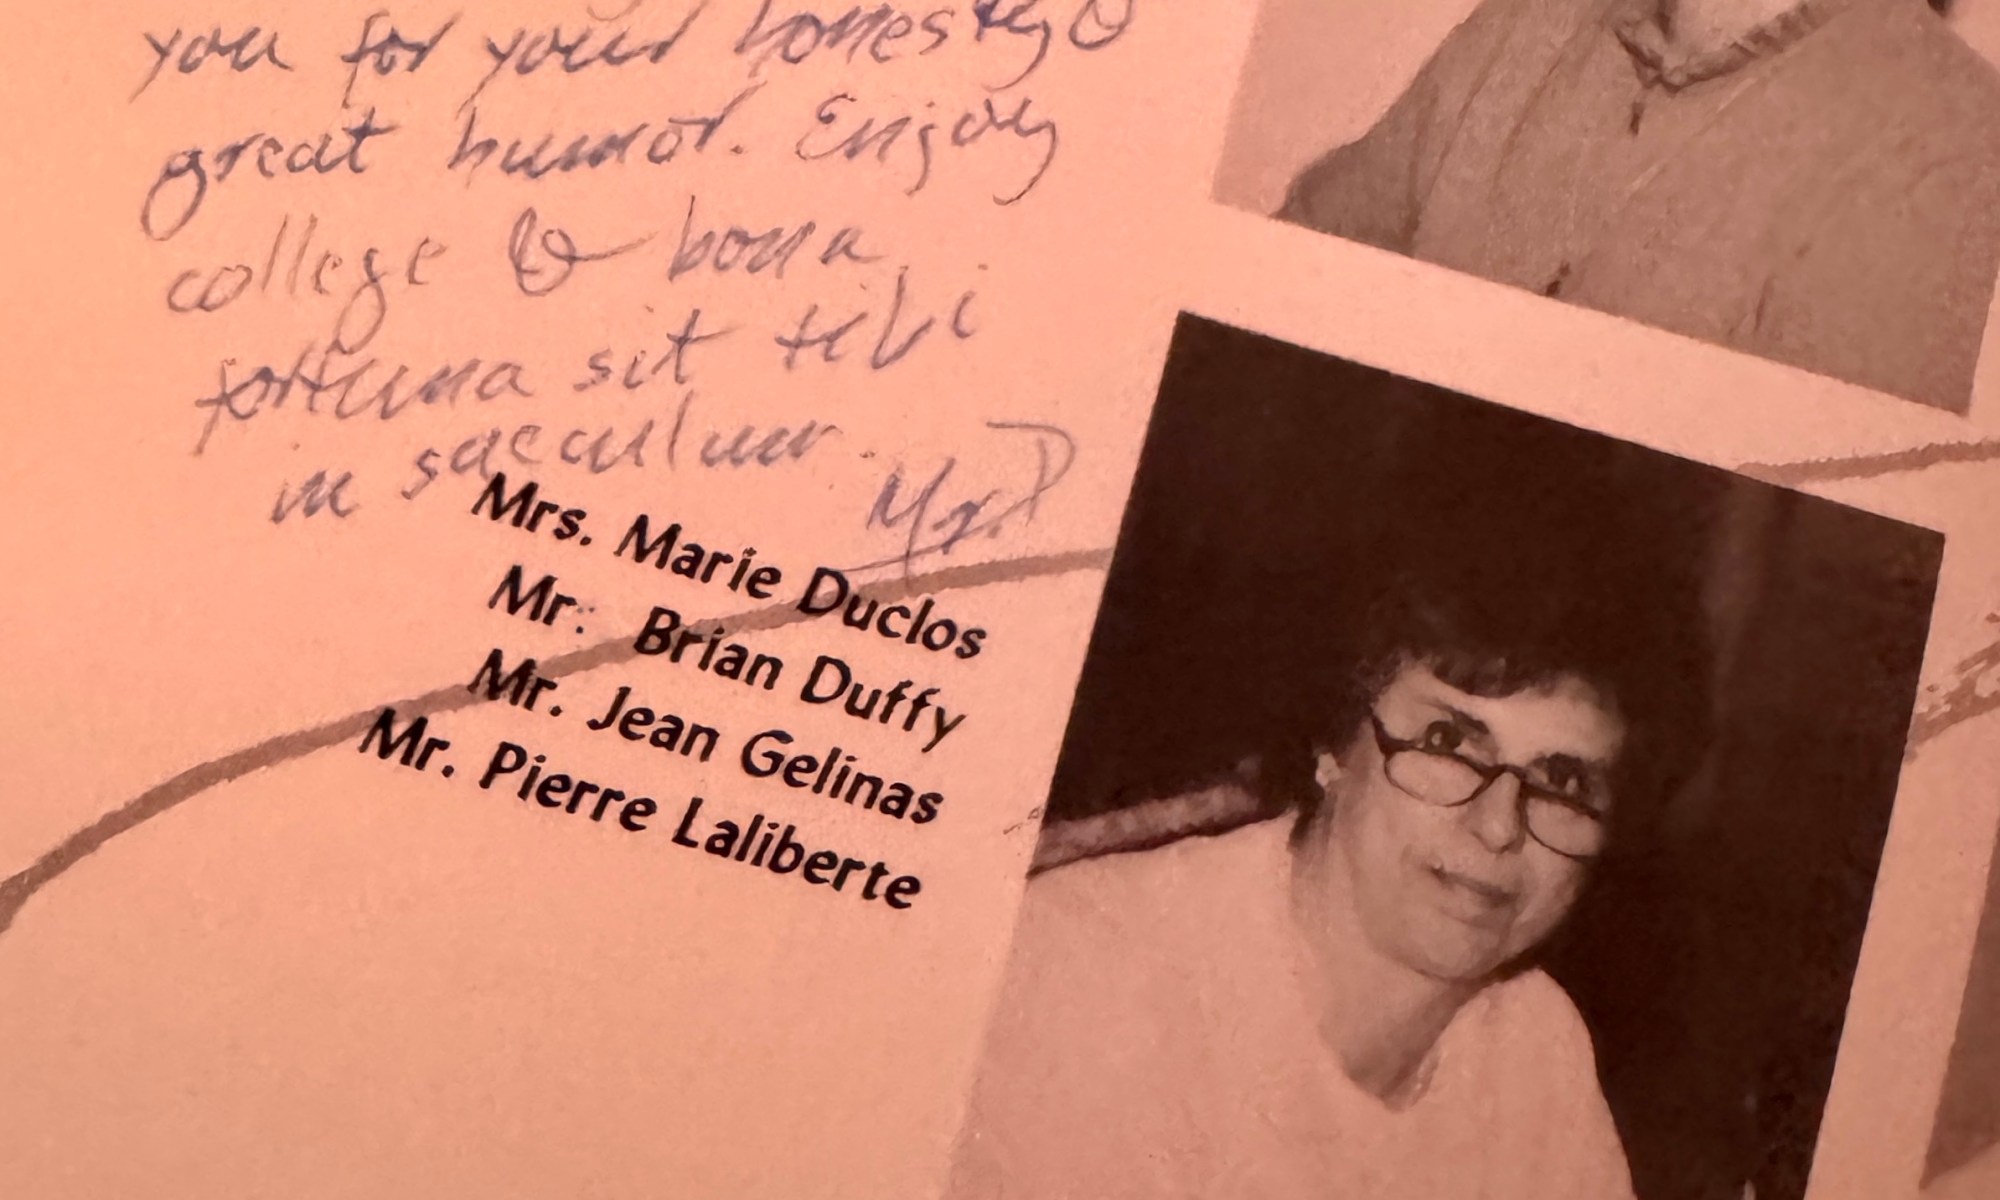 you for your honesty &
great humor. Enjoy
college & bona
fortuna sit tibi
in saeculum.
Mr. D
Mrs. Marie Duclos
Mr. Brian Duffy
Mr. Jean Gelinas
Mr. Pierre Laliberte